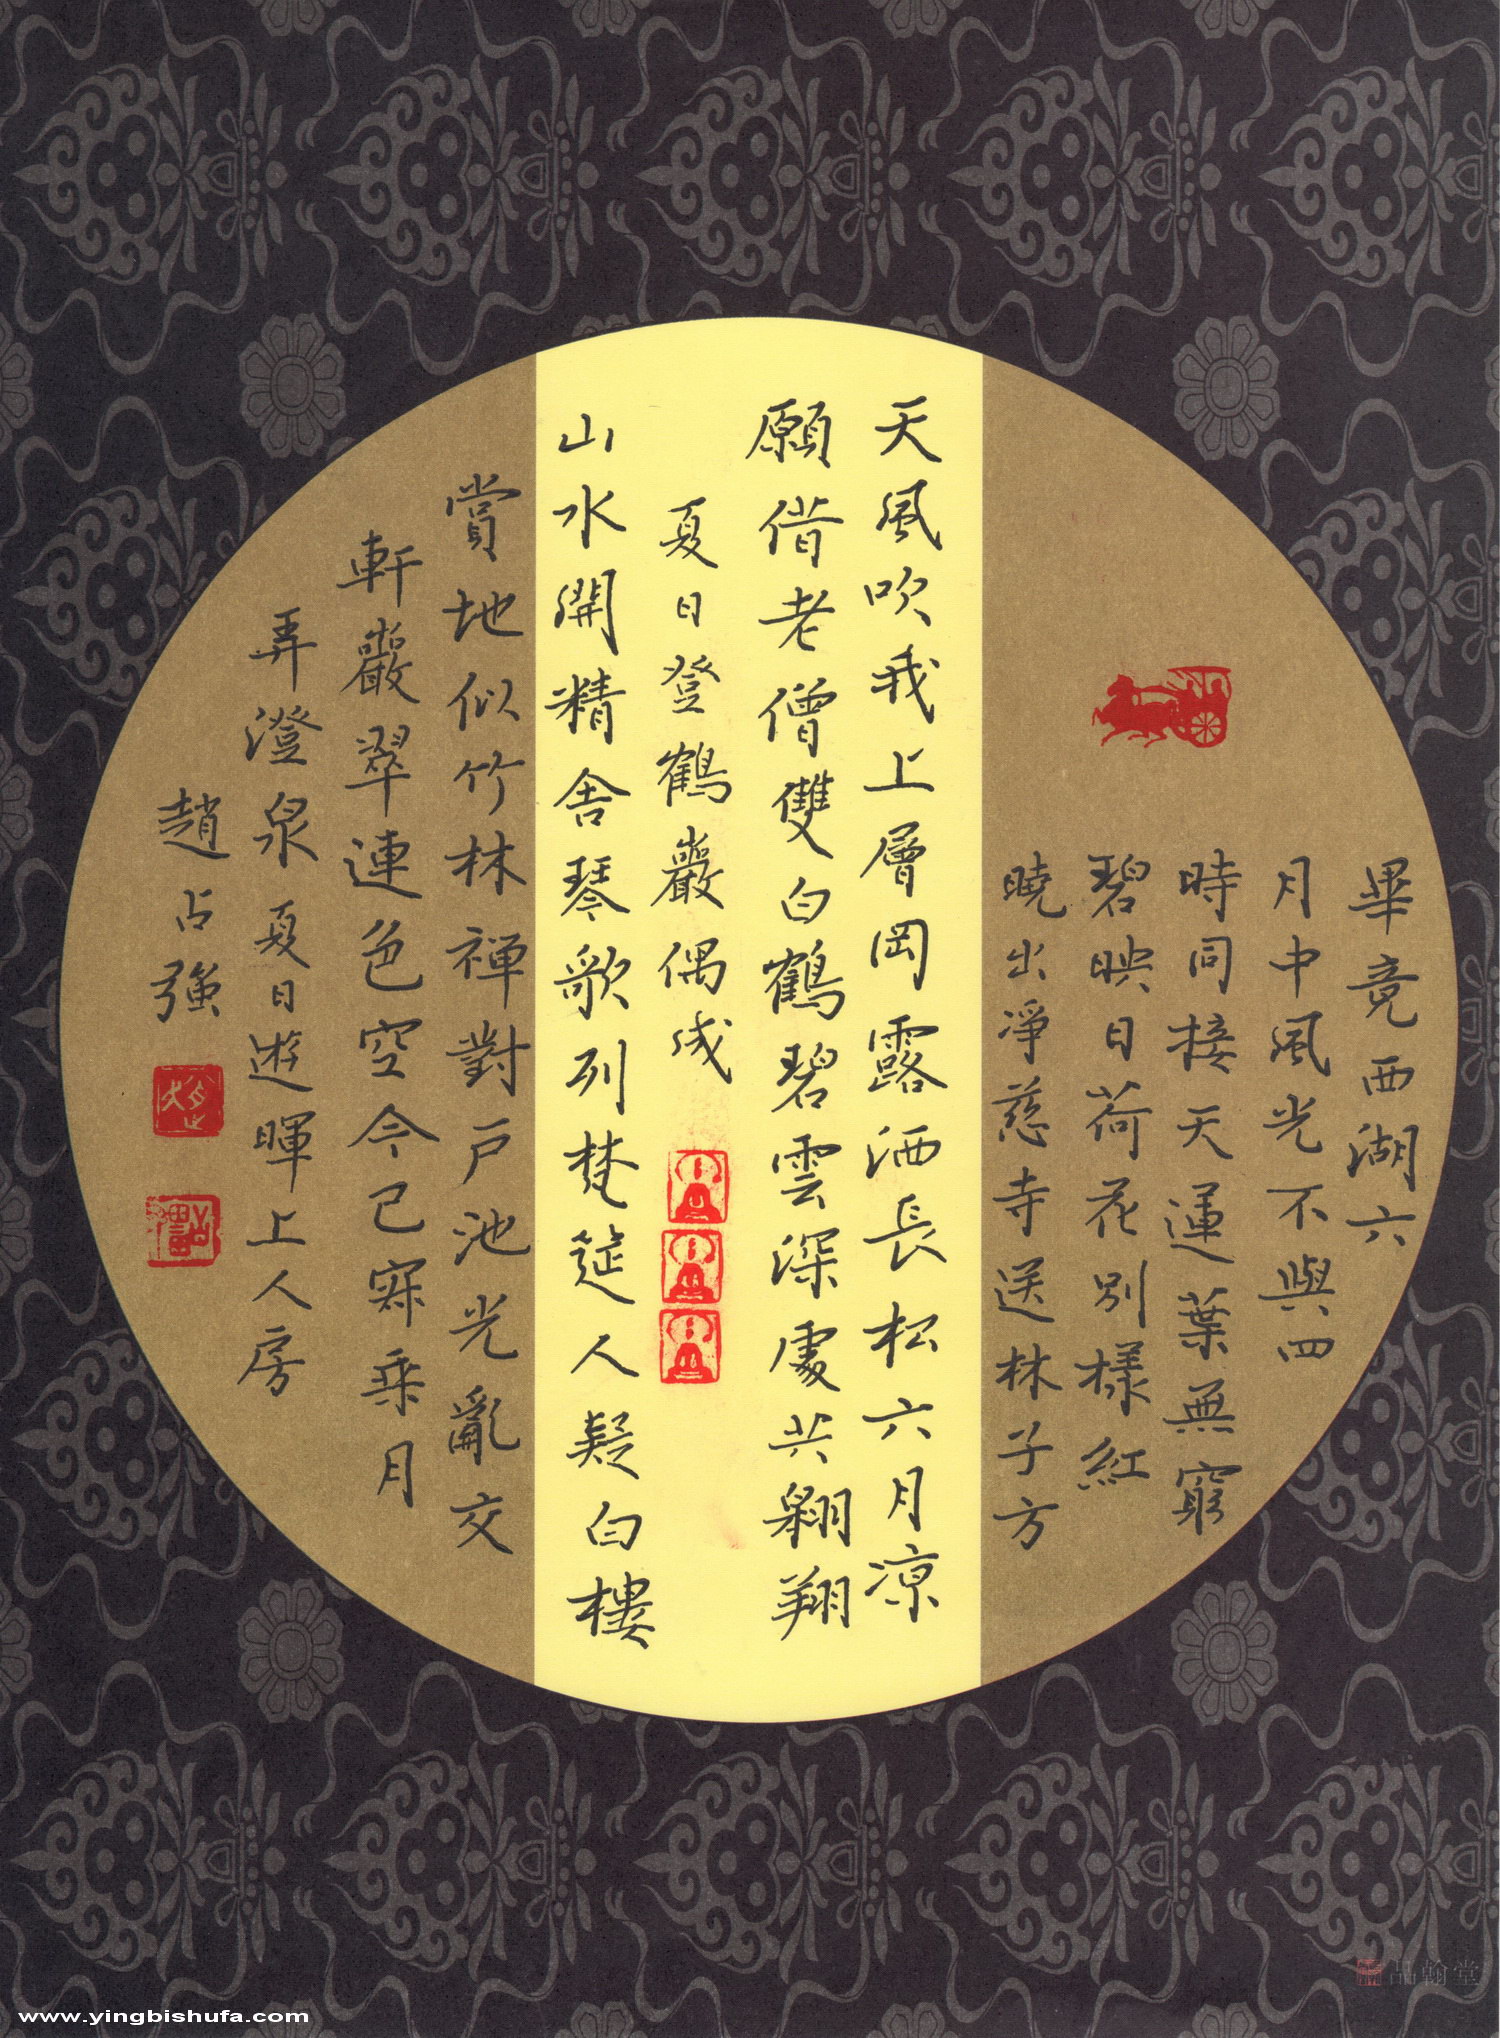 畢竟西湖六
月中風光不與四
時同接天蓮葉無窮
碧映日荷花別樣紅
曉出淨慈寺送林子方
天風吹我上層岡露洒長松六月凉
願借老僧雙白鶴碧雲深處共翱翔
夏日登鶴巖偶成
山水開精舍琴歌列梵筵人疑白樓
賞地似竹林禪對戶池光亂交
軒巖翠連色空今已寂乘月
弄澄泉夏日遊暉上人房
趙占強
品翰堂
www.yingbishufa.com